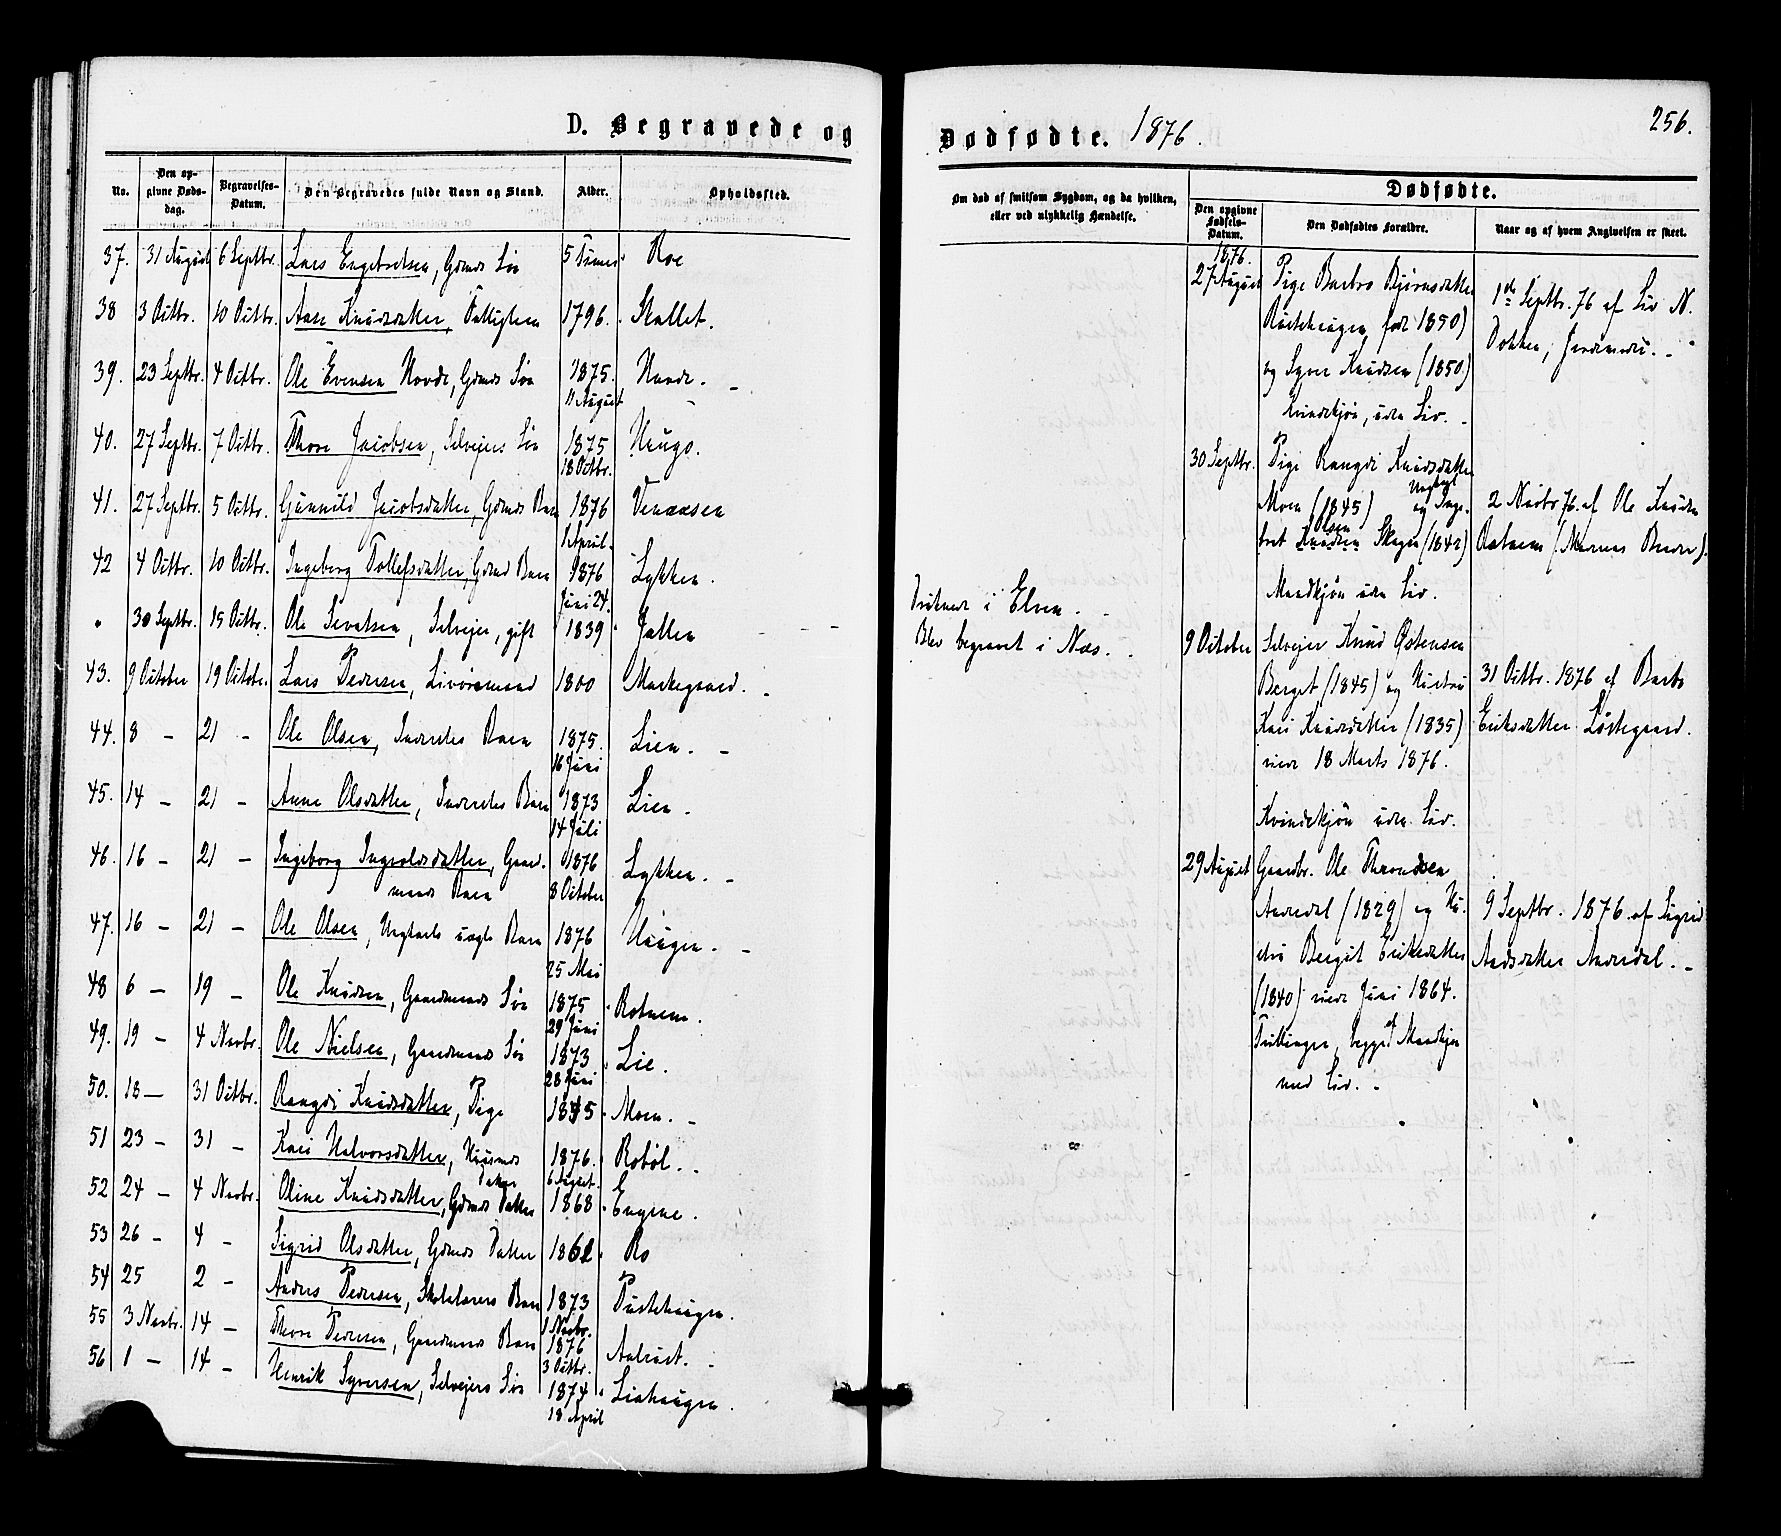 D. Begravede og
No. Den opgivne Dødsdag. Begravelses-Datum. Den Begravedes fulde Navn og Stand. Alder. Opholdssted.
37. 31 August 6 Septbr. Lars Engebretsen, Gdmds Søn 5 Timer Roe
38 3 Octbr. 10 Octbr. Aase Knudsdatter, Fattiglem 1796. Skallet.
39. 23 Septbr. 4 Octbr. Ole Evensen Hovde, Gdmds Søn 1875. Hovde.
11 August
40. 27 Septbr. 7 Octbr. Thore Jacobsen, Selveiers Søn 1875 Haugo.
18 Octbr.
41. 27 Septbr. 5 Octbr. Gunnild Jacobsdatter, Gdmds Barn 1876
1 April.
42 4 Octbr. 10 Octbr. Ingeborg Tollefsdatter, Gdmd Barn 1876 Lykken.
Juni 24.
" 30 Septbr. 15 Octbr. Ole Sevatsen, Selveier, gift 1839 Jallen
43. 9 October 19 Octobr. Lars Pedersen, Livøremand 1800 Markegaard.
44. 8 – 21 – Ole Olsen, Inderstes Barn 1875. Lien.
16 Juni
45. 14 – 21 – Anne Olsdatter, Inderstes Barn 1873 Lien.
14 Juli
46. 16 – 21 – Ingeborg Ingvoldsdatter, Gaard- 1876 Lykken.
mands Barn 8 October
47. 16 – 21 – Ole Olsen, Ungkarls uægte Barn 1876 Haugen.
25 Mai
48 6 – 19 – Ole Knudsen, Gaardmands Søn 1875 Rotnem.
29 Juni
49. 19 – 4 Novbr. Ole Nielsen, Gaardmands Søn 1873 Lie.
28 Juni
50. 18 – 31 Octbr. Rangdi Knudsdatter, Pige 1845 Moen.
51 23 – 31 – Kari Halvorsdatter, Huusmds 1876. Robøl.
Datter 6 Septbr.
52 24 – 4 Novbr. Oline Knudsdatter, Gdmds Datter 1868 Engene.
53 26 – 4 – Sigrid Olsdatter, Gdmds Datter Ro
54 25 2 – Anders Pedersen, Skolelærers Barn 1873
1 Novbr.
55 3 Novbr. 14 – Thore Pedersen, Gaardmands Barn 1876
3 Octbr.
56 1 – 14 – Henrik Syversen, Selveiers Søn 1874 Liahaugen.
18 April
Dødfødte. 1876. 256.
Om død af smitsom Sygdom, og da hvilken, eller ved ulykkelig Hændelse.
Dødfødte.
Den opgivne Fødsels-Datum. Den Dødfødtes Forældre. Naar og af hvem Angivelsen er skeet.
Druknet i Elven.
Blev begravet i Næs.
1876.
27 August Pige Barbro Bjørnsdatter
født 1850)
og Syver Knudsen (1850)
Kvindekjøn, uden Liv.
1ste Septbr. 76 af Liv N.
Dokken, Jordemoder.
30 Septbr. Pige Rangdi Knudsdatter
Moen (1845) og Ungkarl Inge-
bret Knudsen Olsen Skagen (1842)
Mandkjøn uden Liv.
2 Novbr 76. af Ole Knudsen
Rotnem
9 October Selveier Knud Østensen
Berget (1845) og Hustru
Kari Knudsdatter (1835)
viede 18 Marts 1876.
Kvindekjøn uden Liv.
31 Octbr. 1876 af Barbro
Eriksdatter Løstegaard.
29 August Gaardbr. Ole Throndsen
Aavedal (1829) og Hu-
stru Bergit Eriksdatter
(1840) viede Juni 1864.
Tvillinger, begge af Mandkjøn
med Liv.
9 Septbr. 1876 af Sigrid